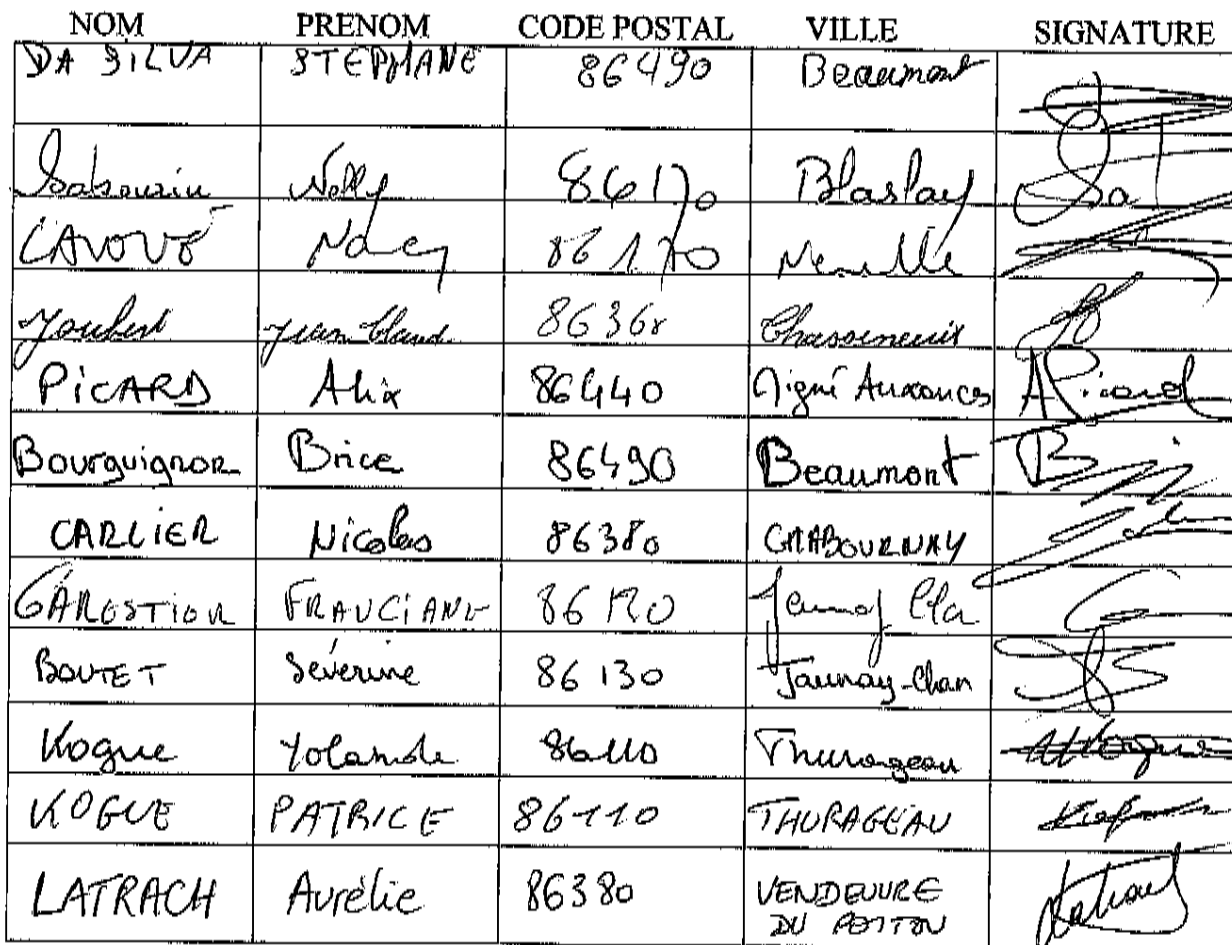 NOM PRENOM CODE POSTAL VILLE SIGNATURE
DA SILVA STEPHANE 86490 Beaumont
Sabourin Nelly 86170 Blaslay
Nancy 86170
Joubert Jean Claud 86360 Chasseneuil
PiCARD Alix 86440 Migné Auxances A Picard
Bourguignon Brice 86490 Beaumont
CARLiER Nicolas 86380 CHABOURNAY
FRANCIANE Jaunay Cla
BOUTET Séverine 86130 Jaunay-Clan
Kogue Yolande 86110 Thurageau
KOGUE PATRICE 86110 THURAGEAU
LATRACH Aurélie 86380 VENDEUVRE
DU POITOU